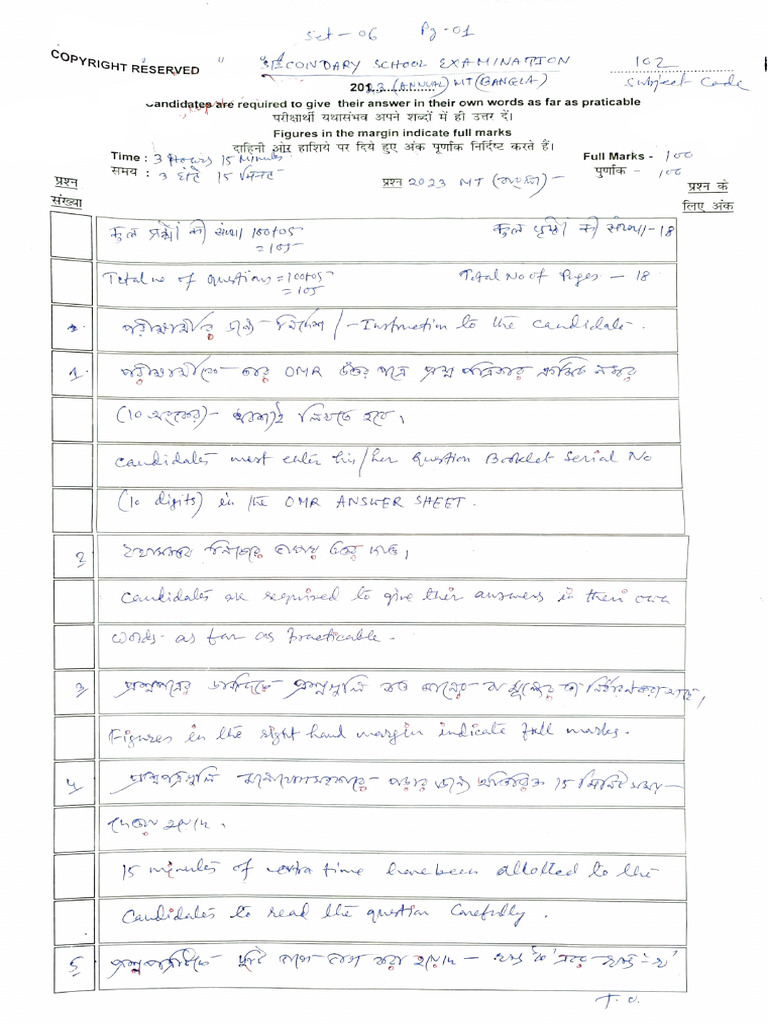 Set - 06 Pg - 01
COPYRIGHT RESERVED
SECONDARY SCHOOL EXAMINATION
102
2023 (ANNUAL) MT (BANGLA)
Subject Code
Candidates are required to give their answer in their own words as far as praticable
परीक्षार्थी यथासंभव अपने शब्दों में ही उत्तर दें।
Figures in the margin indicate full marks
दाहिनी ओर हाशिये पर दिये हुए अंक पूर्णांक निर्दिष्ट करते हैं।
Time : 3 Hours 15 Minutes
Full Marks - 100
समय : 3 घंटे 15 मिनट
पुर्णांक - 100
प्रश्न 2023 MT (বাংলা) -
प्रश्न संख्या
प्रश्न के लिए अंक
कुल प्रश्नों की संख्या 100+05 = 105
कुल पृष्ठों की संख्या - 18
Total no of questions = 100+05 = 105
Total No of Pages - 18
পরীক্ষার্থীর জন্য নির্দেশ / - Instruction to the candidate.
1. পরীক্ষার্থীকে তার OMR উত্তর পত্রে প্রশ্ন পুস্তিকার ক্রমিক নম্বর
(10 অংকের) - অবশ্যই লিখতে হবে।
Candidates must enter his/her Question Booklet Serial No
(10 digits) in the OMR ANSWER SHEET.
2 যথাসম্ভব নিজের ভাষায় উত্তর দাও।
Candidates are required to give their answers in their own
words as far as Practicable.
3 প্রশ্নপত্রের ডানদিকে প্রশ্নগুলি কত মানের বা মূল্যের তা নির্ধারণ করা আছে,
Figures in the right hand margin indicate full marks.
4 প্রশ্নপত্রগুলি মনোযোগসহকারে পড়ার জন্য অতিরিক্ত 15 মিনিট সময়
দেওয়া হয়েছে.
15 minutes of extra time have been allotted to the
Candidates to read the question Carefully.
5 প্রশ্নপত্রটিকে দুটি ভাগে ভাগ করা হয়েছে - খণ্ড 'ক' এবং খণ্ড - 'খ'
T. O.